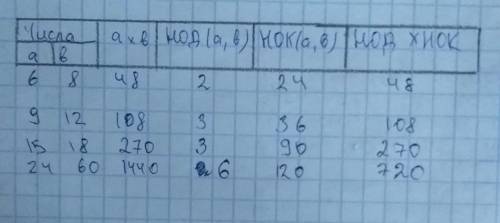 Числа a x в НОД(a, в) НОК(a, в) НОД x НОК
a в
6 8 48 2 24 48
9 12 108 3 36 108
15 18 270 3 90 270
24 60 1440 6 120 720